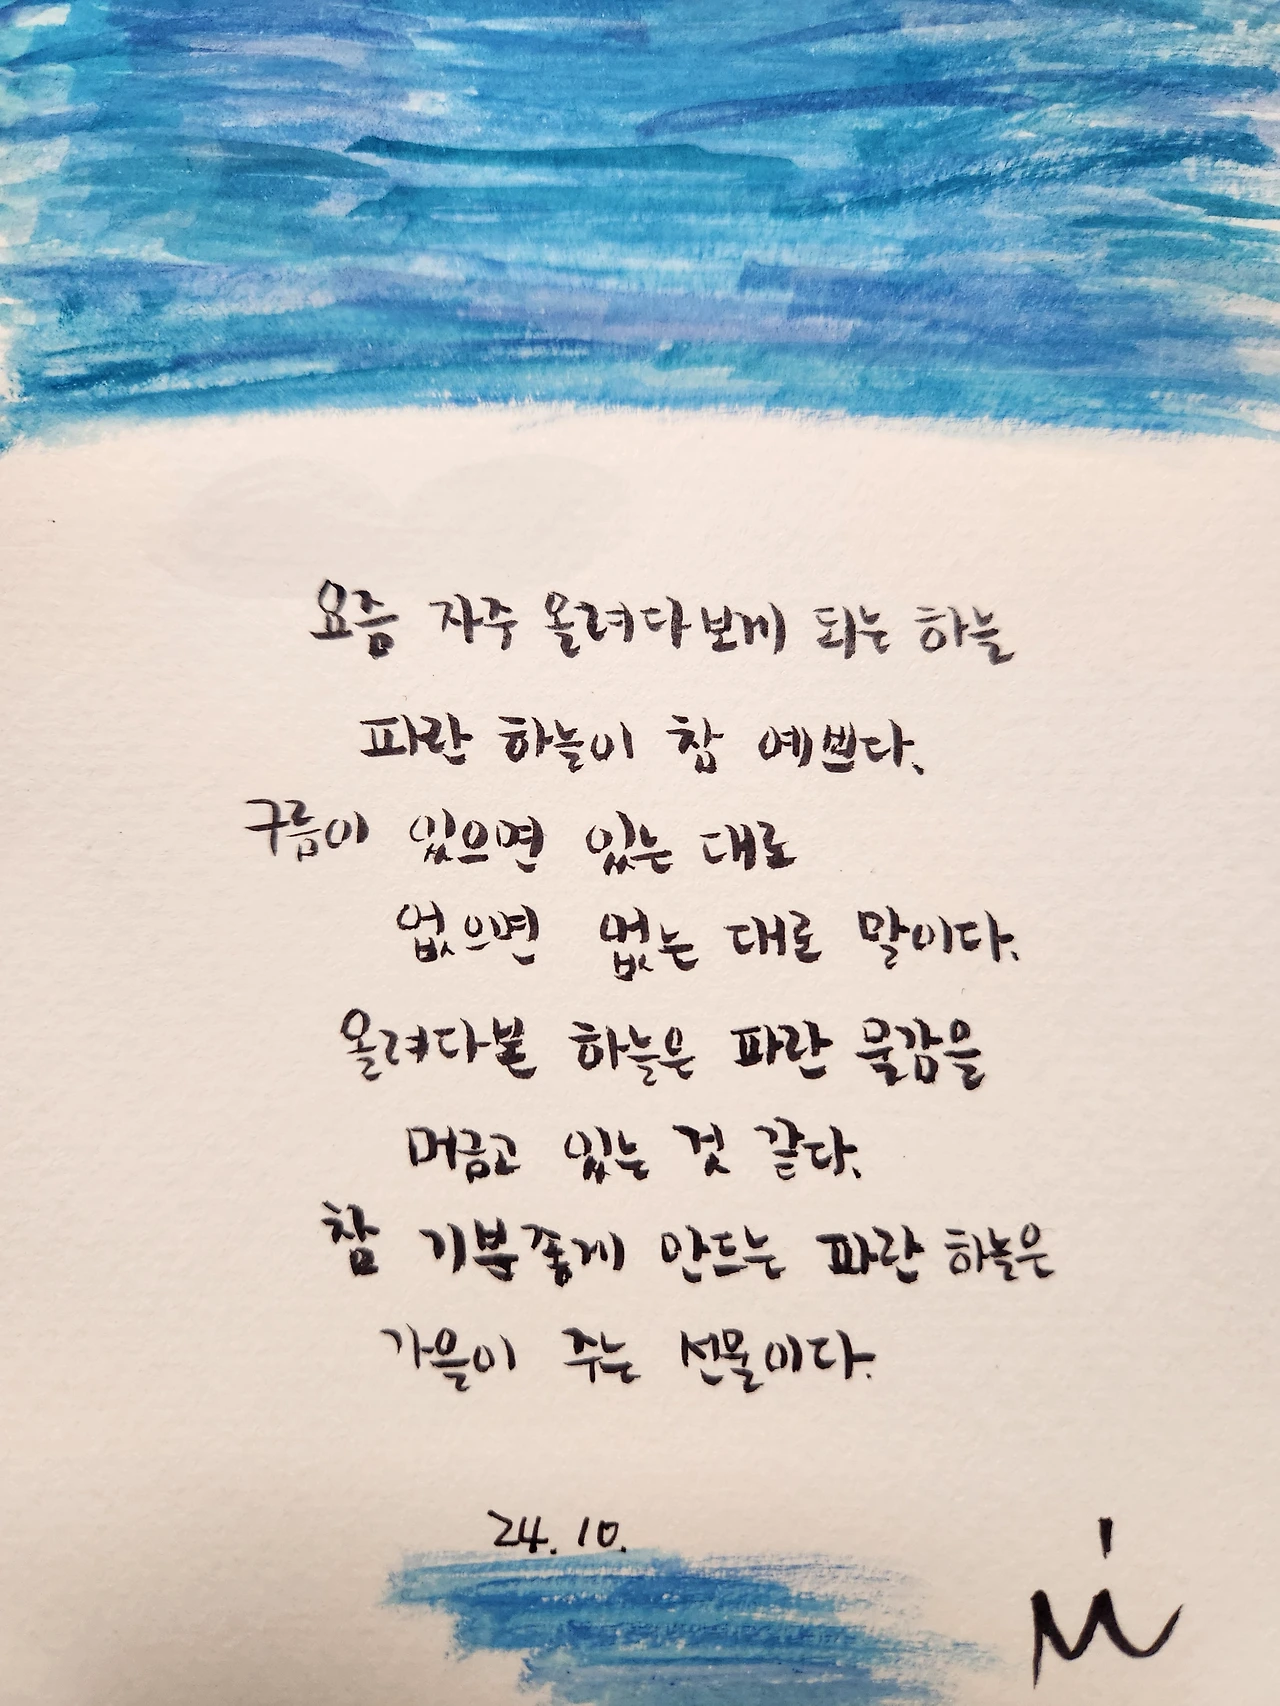 요즘 자주 올려다보게 되는 하늘
파란 하늘이 참 예쁘다.
구름이 있으면 있는 대로
없으면 없는 대로 말이다.
올려다본 하늘은 파란 물감을
머금고 있는 것 같다.
참 기분좋게 만드는 파란 하늘은
가을이 주는 선물이다.
24. 10.